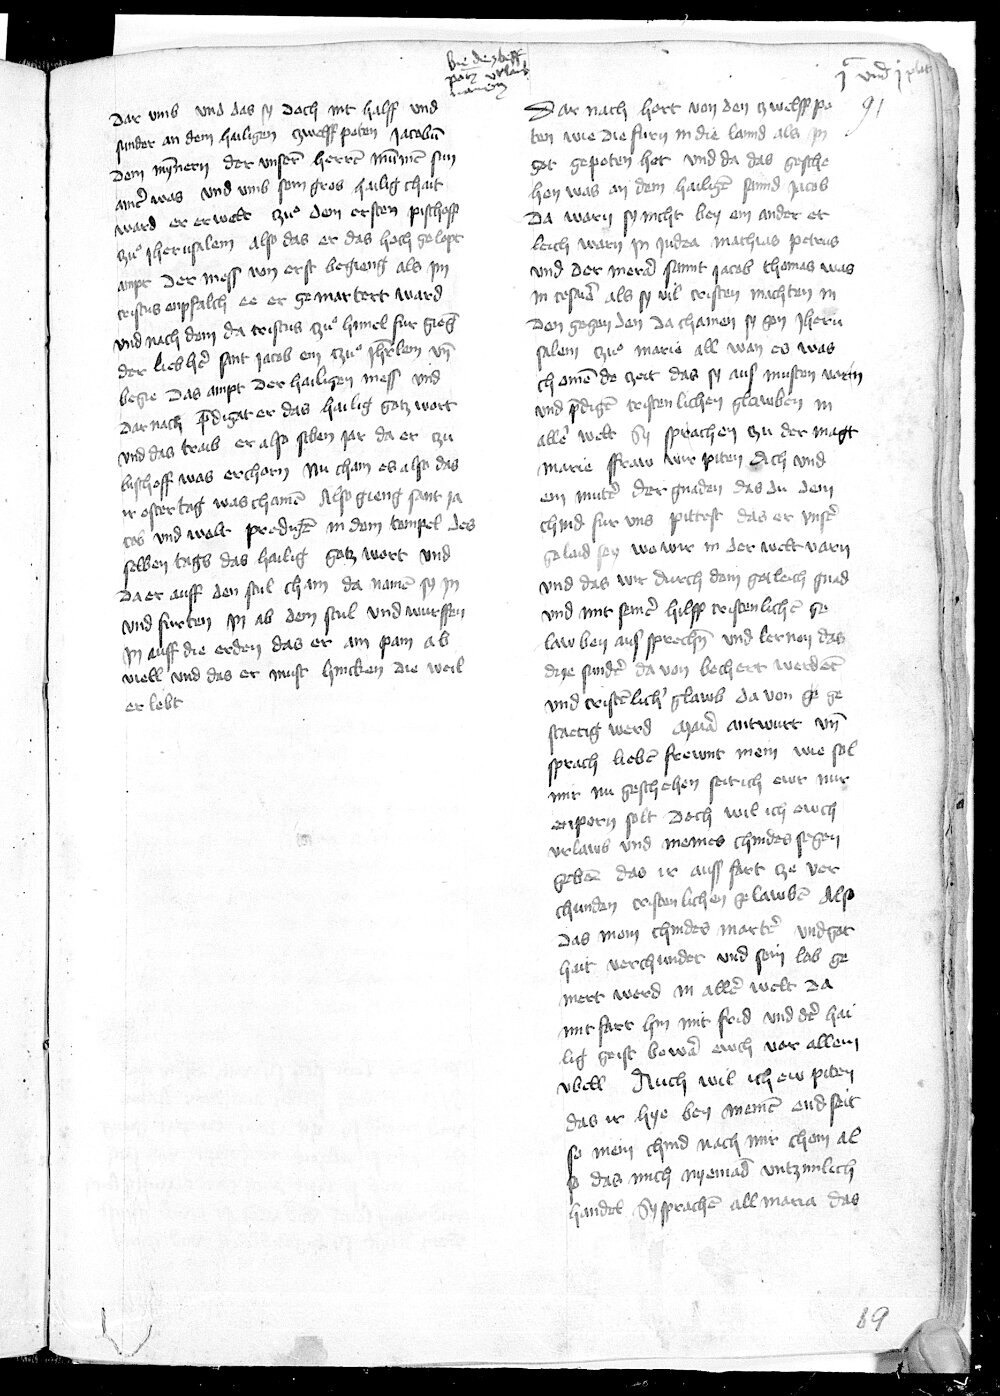 die zbelff
poten urlaub
namen
j und j plat
91
Dar umb und das sy doch nit halff und
sunder an dem hailigen zwelff poten Jacobū
dem mynnern der unserē herrē mūmē sun
ainer was und umb sein gros hailig chait
ward er erwelt zuo dem ersten pischoff
zuo Jherusalem also das er das hoch gelopt
ampt der mess von erst begieng als im
cristus enpfalch ee er gemartert ward
und nach dem da cristus zuo himel fur gienḡ
der lieb her sant Jacob ein zuo Jhrlem un̄
begie das ampt der hailigen mess und
dar nach p̄digat er das hailig gotz wort
und das traib er also siben jar da er zu
bischoff was erchorn Nu cham es also das
ir oster tag was chamē Also gieng sant Ja
cob und wolt predigē in dem tempel des
selben tags das hailig gotz wort und
da er auff den stul cham da namē sy in
und furten in ab dem stul und wurffen
in auff die erden das er ain pain ab
viell und das er must hincken die weil
er lebt
Dar nach hort von den zwelff po
ten wie die furn in die lannd als in
got gepoten het und da das gesche
hen was an dem hailigē sannd Jacob
da warn sy nicht bey ein ander et
leich warn in Judea mathias petrus
und der merer sannt Jacob thomas was
in als sy vil cristen machten in
den gegenden da chamen sy gen Jheru
salem zuo marie all wan es was
chomē de zeit das sy aus musten varn
und p̄digē cristenlichen glawben in
aller welt Sy sprachen zu der magt
marie ffraw wir piten dich und
ein muter der gnaden das du dein
chind fur uns pittest das er unser
gelaid sey wo wir in der welt varn
und das wir durch dein gotleich gnad
und mit seiner hilff cristenlichē ge
lawben aus sprechn̄ und lernen das
die sunder da von bechert werdē
und cristēlich glawb da von ge ge
staetig werd Maria antwurt un̄
sprach liebē frewnt mein wie sol
mir nu geschehen seit ich ewr nur
enporn solt Doch wil ich ewch
urlawb und meines chindes segen
geben das ir auss fart ze ver
chunden cristenlichen gelawbē Also
das mein chindes marter und got
hait verchundet und sein lob ge
mert werd in aller welt Da
mit fart hin mit frid und der hai
lig geist bewar ewch vor allem
ubell Auch wil ich ew piten
das ir hye bey meinē end seit
so mein chind nach mir chom al
so das mich nyemād untzimlich
handel Sy sprachē all maria das
89